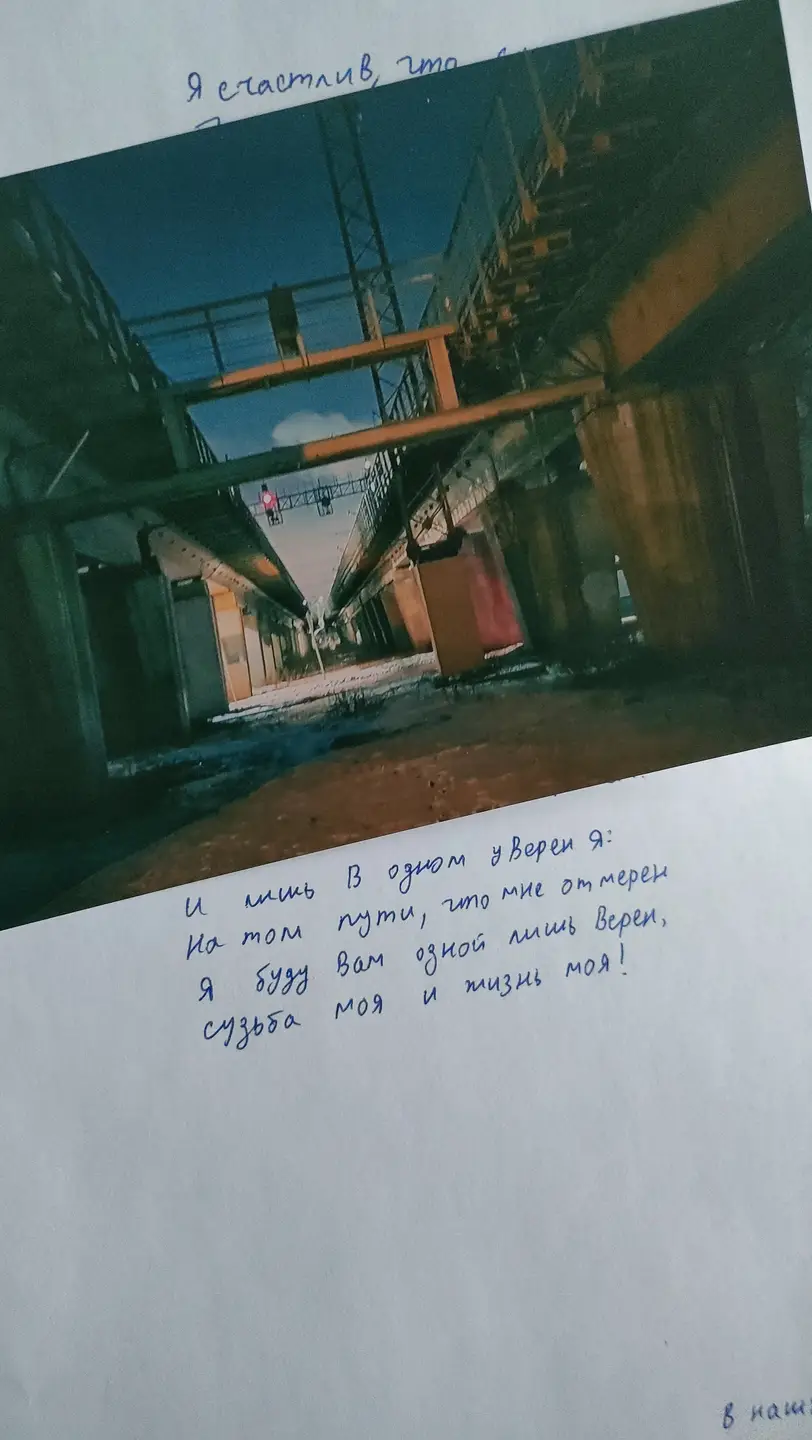 Я счастлив, что
И лишь в одном уверен я:
На том пути, что мне отмерен
Я буду Вам одной лишь верен,
судьба моя и жизнь моя!
в наш